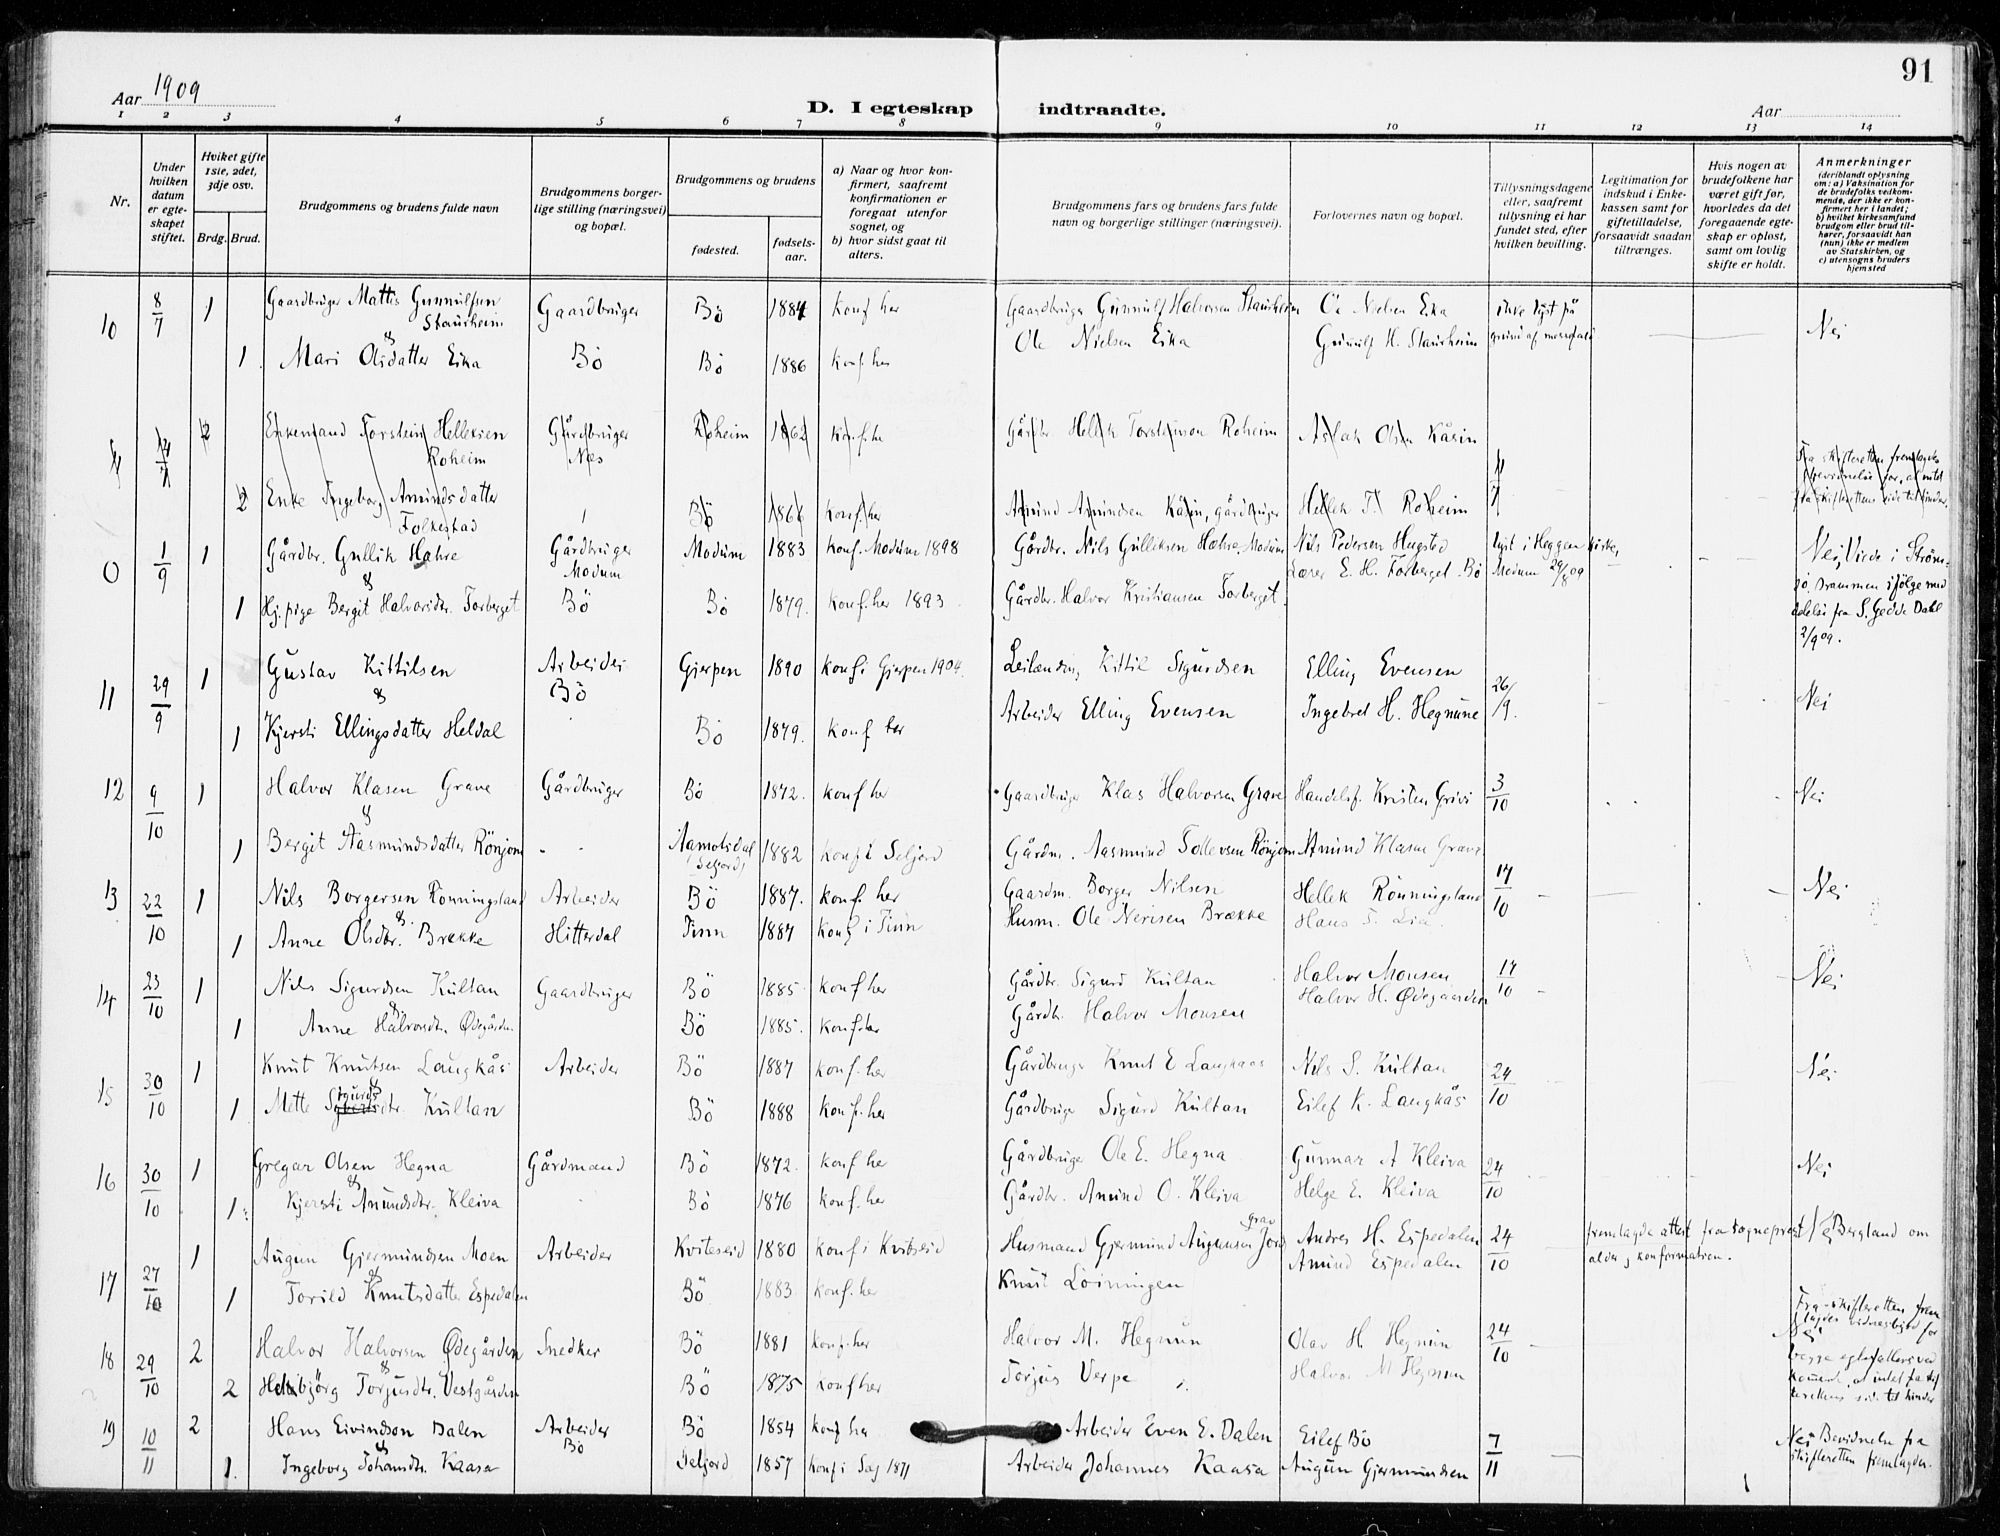 91
Aar 1909
D. I egteskap indtraadte.
Aar
1 2 3 4 5 6 7 8 9 10 11 12 13 14
Nr.
Under hvilken datum er egte-skapet stiftet.
Hviket gifte 1ste, 2det, 3dje osv.
Brdg. Brud.
Brudgommens og brudens fulde navn
Brudgommens borger-lige stilling (næringsvei) og bopæl.
Brudgommens og brudens
fødested.
fødsels-aar.
a) Naar og hvor kon-firmert, saafremt konfirmationen er foregaat utenfor sognet, og
b) hvor sidst gaat til alters.
Brudgommens fars og brudens fars fulde navn og borgerlige stillinger (næringsvei).
Forlovernes navn og bopæl.
Tillysningsdagene eller, saafremt tillysning ei har fundet sted, efter hvilken bevilling.
Legitimation for indskud i Enke-kassen samt for giftetilladelse, forsaavidt saadan tiltrænges.
Hvis nogen av brudefolkene har været gift før, hvorledes da det foregaaende egte-skap er opløst, samt om lovlig skifte er holdt.
Anmerkninger (deriblandt oplysning om: a) Vaksination for de brudefolks vedkom-mende, der ikke er kon-firmert her i landet; b) hvilket kirkesamfund brudgom eller brud til-hører, forsaavidt han (hun) ikke er medlem av Statskirken, og c) utensogns bruders hjemsted
10 8/7 1 Gaardbruger Mattis Gunnulfsen Staurheim Gaardbruger Bö 1884 konf her Gaardbruger Gunnulf Halvorsen Staurheim Ole Nielsen Eika ikke lyst på Nei
& Ole Nielsen Eika Gunnulf H. Staurheim grund af
1 Mari Olsdatter Eika Bö Bö 1886 konf. her
2 Enkemand Torstein Helleksen Roheim Gårdbruger Næs Roheim 1862 konf. he Gårdbr. Hellek Torsteinson Roheim Aslak Olsen Kåsin
2 Enke Ingeborg Amundsdatter Folkestad Bö 1866 konf. her Amund Amundsen Kåsin, gårdbruger Hellek T. Roheim Fra skifteretten fremlagdes bevidnelse for, at intet fra skifterettens side til hinder.
0 1/9 1 Gårdbr. Gullik Hahre Gårdbruger Modum Modum 1883 konf. Modum 1898 Gårdbr. Nils Gulleksen Hahre, Modum Nils Pedersen Hugsted lyst i Heggen kirke, Nei, Viede i Ström-
& Lærer E. H. Forberget. Bö Modum 29/8 09 sö Drammen ifölge med
1 Hj. pige Bergit Halvorsdtr. Forberget Bö Bö 1879. konf. her 1893 Gårdbr. Halvor Kristiansen Forberget. delelse fra S. Gedde Dahl
2/9 09.
11 29/9 1 Gustav Kittilsen Arbeider Bö Gjerpen 1890 konf i Gjerpen 1904. Leilænding Kittil Sigurdsen Elling Evensen 26/9. Nei
& Arbeider Elling Evensen Ingebret H. Hegnune
1 Kjersti Ellingsdatter Heldal Bö 1879. konf her
12 9/10 1 Halvor Klasen Grave Gårdbruger Bö 1872. konf her Gaardbruger Klas Halvorsen Grave Handelsf. Kristen Grivi 3/10 Nei
&
1 Bergit Aasmundsdatter Rönjom Aamotsdal (Seljord) 1882 konf i Seljord Gårdm. Aasmund Tollevsen Rönjom Amund Klasen Grave
13 22/10 1 Nils Borgersen Rönningsland Arbeider Bö 1887. konf her Gaardm. Borger Nilsen Hellek Rönningsland 17/10 Nei
& Husm. Ole Nerisen Brække Hans T. Lia.
1 Anne Olsdtr. Brække Hitterdal Tinn 1887 konf i Tinn
14 23/10 1 Nils Sigurdsen Kultan Gaardbruger Bö 1885. konf her Gårdbr. Sigurd Kultan Halvor Monsen 17/10 Nei
& Halvor H. Ødegaarden
1 Anne Halvorsdtr. Ødegården. Bö 1885. konf. her Gårdb. Halvor Monsen
15 30/10 1 Knut Knutsen Langkås Arbeider Bö 1887 konf. her Gårdbruger Knut E Langkaas Nils S. Kultan 24/10 Nei
&
1 Mette Sigurdsdtr. Kultan Bö 1888 konf. her Gårdbruger Sigurd Kultan Eilef K. Langkås
16 30/10 1 Gregar Olsen Hegna Gårdmand Bö 1872. konf. her Gårdbruger Ole E. Hegna Gunnar A Kleiva 24/10 Nei
&
1 Kjersti Amundsdtr. Kleiva Bö 1876 konf. her Gårdbr. Amund O. Kleiva Helge E. Kleiva
17 27/10 1 Augun Gjermundsen Moen Arbeider Kviteseid 1880 konf i Kvitseid Husmand Gjermund Augunsen Jordgrav Andres H. Espedalen 24/10 fremlagde attest fra sogneprest Bergland om
& Amund Espedalen alder og konfirmation.
1 Torild Knutsdatter Espedalen Bö 1883. konf. her Knut Loiningen
18 29/10 2 Halvor Halvorsen Ødegården Snedker Bö 1881 konf. her Halvor M. Hegnun Olav H. Hegnun 24/10 Nei Fra skifteretten frem-lagdes vidnesbyrd for
& Halvor M Hegnun begge egtefællers ved-
2 Torjusdtr. Vestgården Bö 1875 konf her Torjus Verpe kommende, at intet fra skif-terettens side til hinder
19 10/11 2 Hans Eivindson Dalen Arbeider Bö Bö 1854 konf her Arbeider Even E. Dalen Eilef Bö 7/11 Nei Bevidnelse fra
& skifteretten fremlagdes.
1. Ingeborg Johansdtr. Kaasa Seljord 1857 konf i 1871 Arbeider Johannes Kaasa Augun Gjermundsen